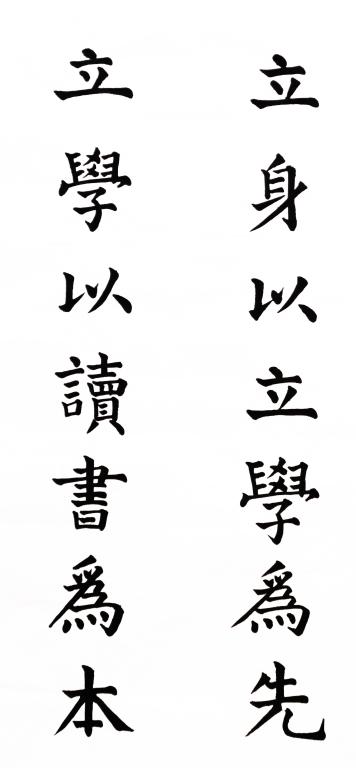 立身以立學為先
立學以讀書爲本